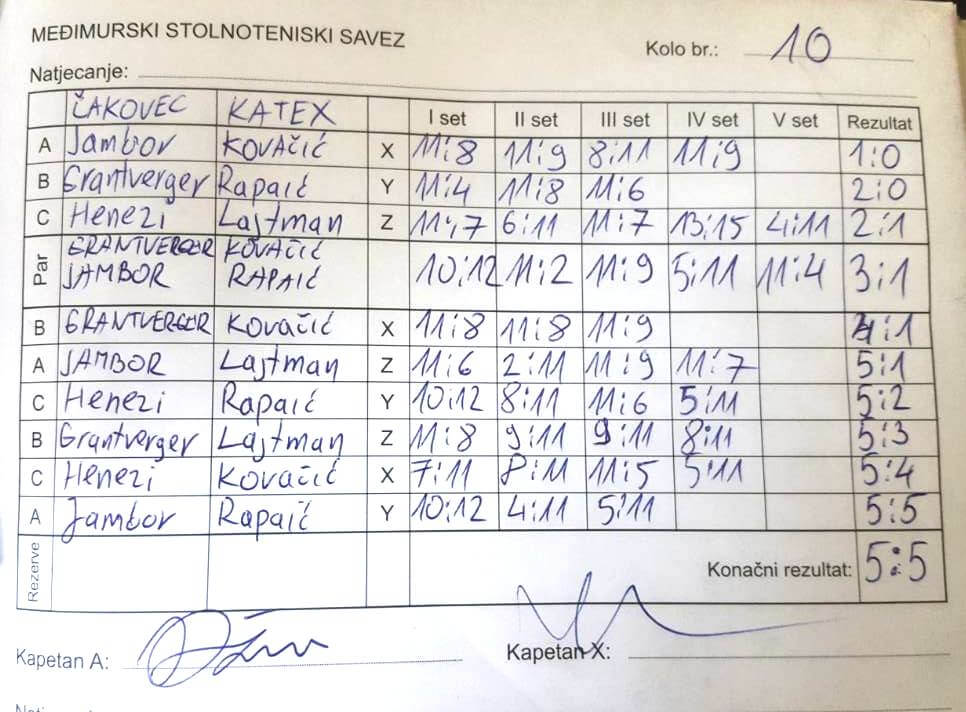 MEĐIMURSKI STOLNOTENISKI SAVEZ
Kolo br.: 10
Natjecanje:
ČAKOVEC KATEX I set II set III set IV set V set Rezultat
A Jambor KOVAČIĆ X 11:8 11:9 8:11 11:9 1:0
B Grantverger Rapaić Y 11:4 11:8 11:6 2:0
C Henezi Lajtman Z 11:7 6:11 11:7 13:15 4:11 2:1
Par GRANTVERGER KOVAČIĆ
JAMBOR RAPAIĆ 10:12 11:2 11:9 5:11 11:4 3:1
B GRANTVERGER Kovačić X 11:8 11:8 11:9 4:1
A JAMBOR Lajtman Z 11:6 2:11 11:9 11:7 5:1
C Henezi Rapaić Y 10:12 8:11 11:6 5:11 5:2
B Grantverger Lajtman Z 11:8 9:11 9:11 8:11 5:3
C Henezi Kovačić X 7:11 8:11 11:5 5:11 5:4
A Jambor Rapaić Y 10:12 4:11 5:11 5:5
Rezerve Konačni rezultat: 5:5
Kapetan A: Kapetan X: